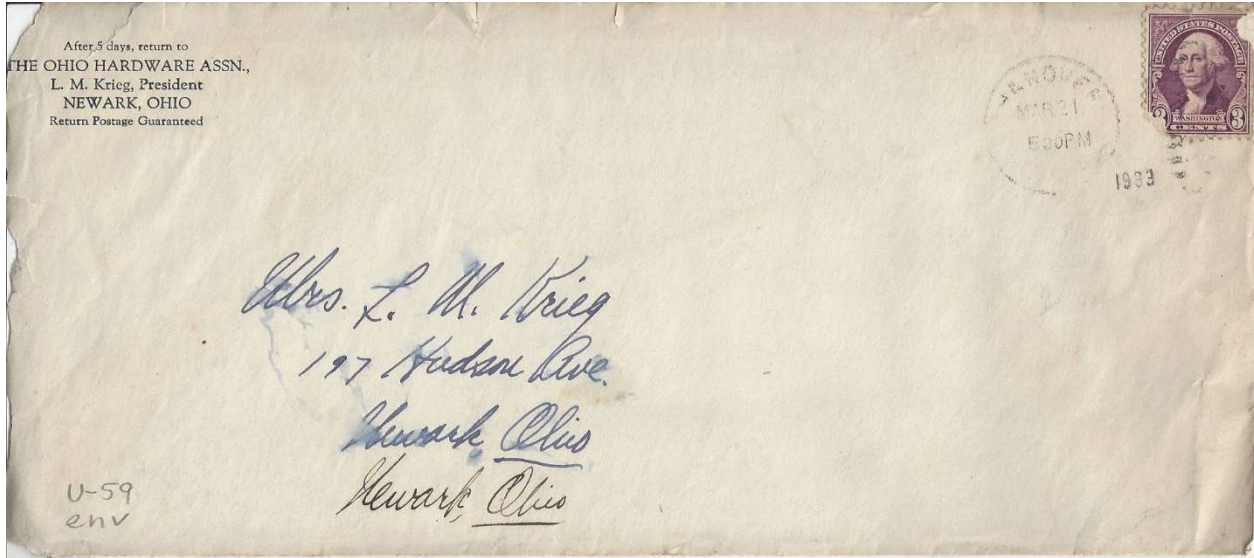 After 5 days, return to
THE OHIO HARDWARE ASSN.,
L. M. Krieg, President
NEWARK, OHIO
Return Postage Guaranteed
UNITED STATES POSTAGE
WASHINGTON
3 3
CENTS
MAR 21
530PM
1933
Mrs. L. M. Krieg
197 Hudson Ave.
Newark, Ohio
Newark, Ohio
U-59
env